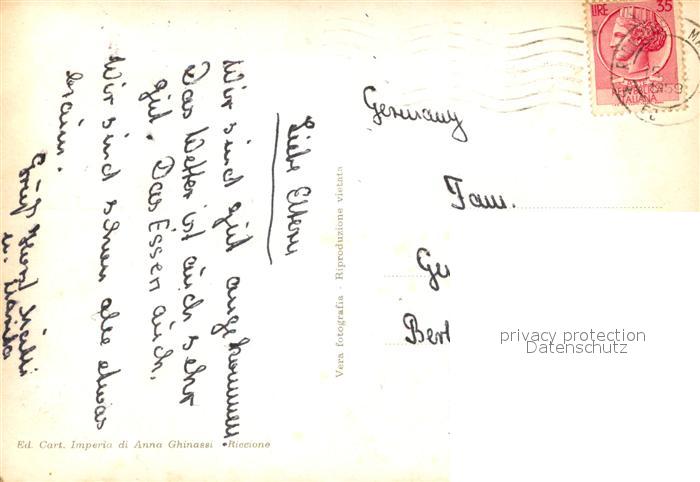 Liebe Eltern
Wir sind gut angekommen.
Das Wetter ist auch sehr
gut. Das Essen auch.
Wir sind schon alle etwas
braun.
Gruß Horst
u.
Vera fotografia - Riproduzione vietata
Germany
Fam.
Ge
Berl
privacy protection
Datenschutz
LIRE 35
REPUBBLICA
ITALIANA
Ed. Cart. Imperia di Anna Ghinassi - Riccione